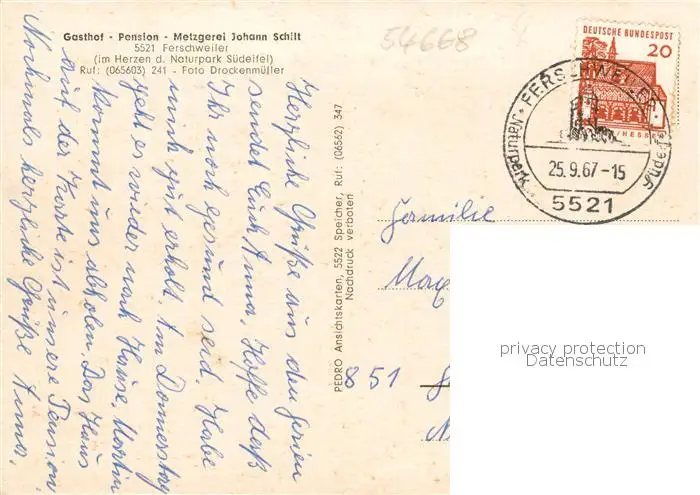 Gasthof - Pension - Metzgerei Johann Schilt
5521 Ferschweiler
(im Herzen d. Naturpark Südeifel)
Ruf: (065603) 241 - Foto Drockenmüller
54668
Herzliche Grüße aus den Ferien
sendet Euch Anna. Hoffe daß
Ihr noch gesund seid. Habe
mich gut erholt. Am Donnerstag
geht es wieder nach Hause. Martin
kommt uns abholen. Das Haus
auf der Karte ist unsere Pension
Nochmals herzliche Grüße Anna.
PEDRO Ansichtskarten, 5522 Speicher, Ruf: (06562) 347
Nachdruck verboten
DEUTSCHE BUNDESPOST
20
/HESSEN
FERSCHWEILER
Naturpark Südeifel
25.9.67-15
5521
Familie
Max
851
privacy protection
Datenschutz